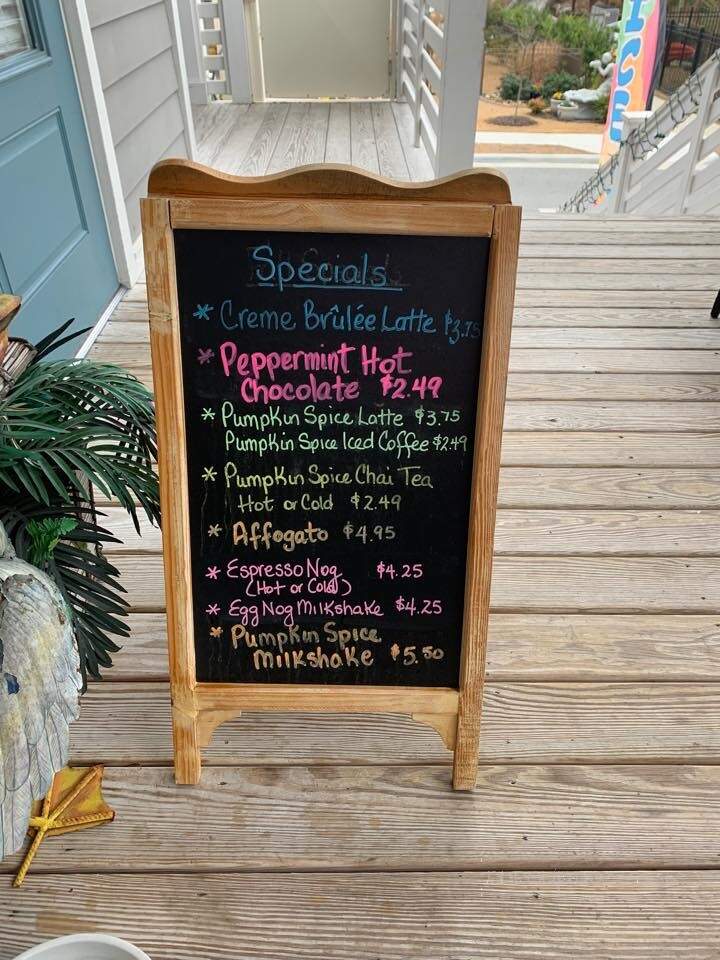 Specials
* Creme Brûlée Latte $3.75
* Peppermint Hot
Chocolate $2.49
* Pumpkin Spice Latte $3.75
Pumpkin Spice Iced Coffee $2.49
* Pumpkin Spice Chai Tea
Hot or Cold $2.49
* Affogato $4.95
* Espresso Nog $4.25
(Hot or Cold)
* Egg Nog Milkshake $4.25
* Pumpkin Spice
Milkshake $5.50